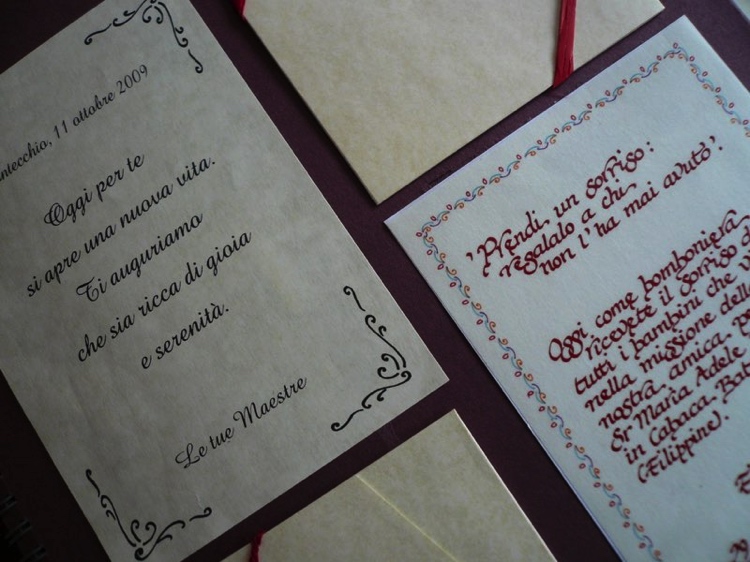 11 ottobre 2009
Oggi per te
si apre una nuova vita.
Ti auguriamo
che sia ricca di gioia
e serenità.
Le tue Maestre
'Prendi un sorriso:
regalalo a chi
non l'ha mai avuto'.
Oggi come bomboniera
ricevete il sorriso
tutti i bambini che
nella missione della
nostra amica
Sr Maria Adele
in Cabaca.
(Filippine).